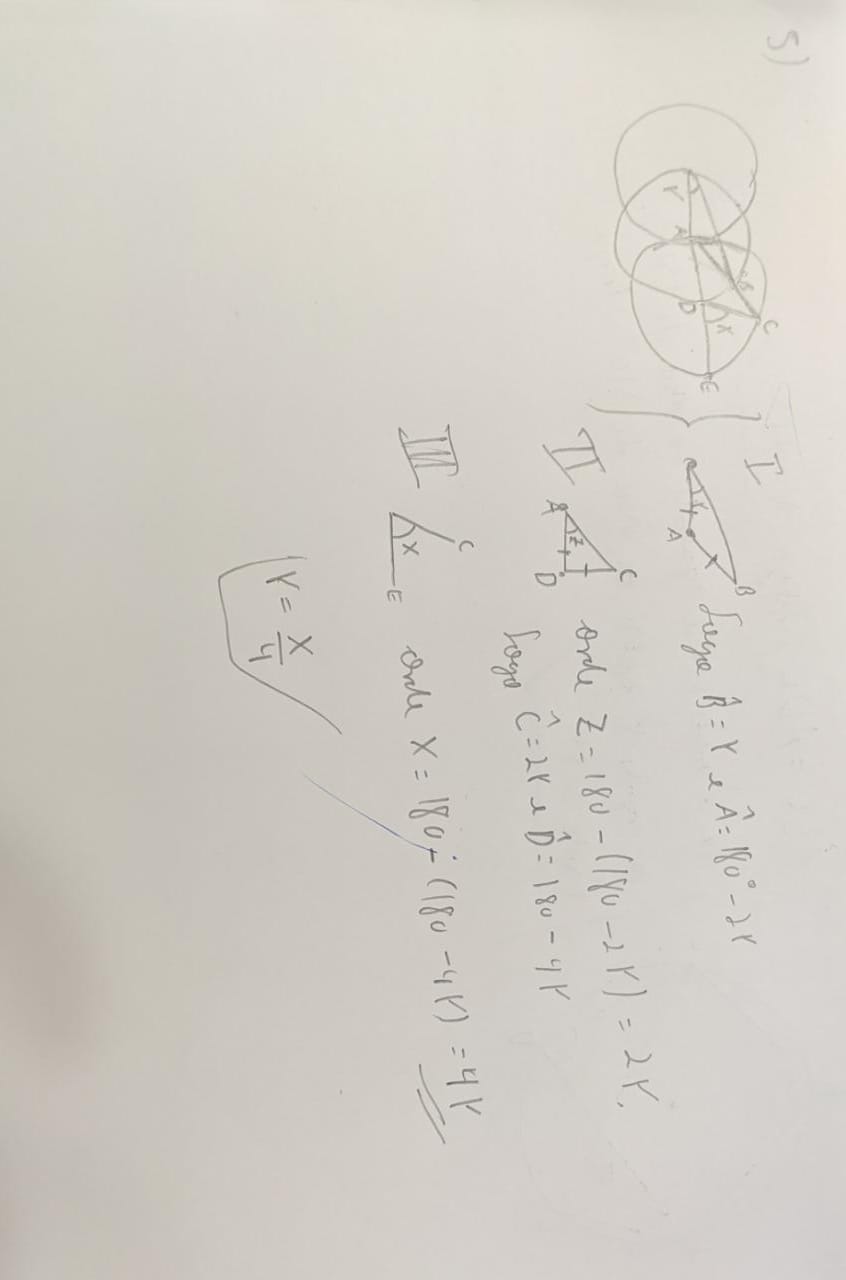 5)
Y A B C D X E
I
A B
Logo B̂ = Y e Â = 180° - 2Y
II
A Z C D
onde Z = 180 - (180 - 2Y) = 2Y,
Logo Ĉ = 2Y e D̂ = 180 - 4Y
III
X C E
onde X = 180 - (180 - 4Y) = 4Y
Y = X/4